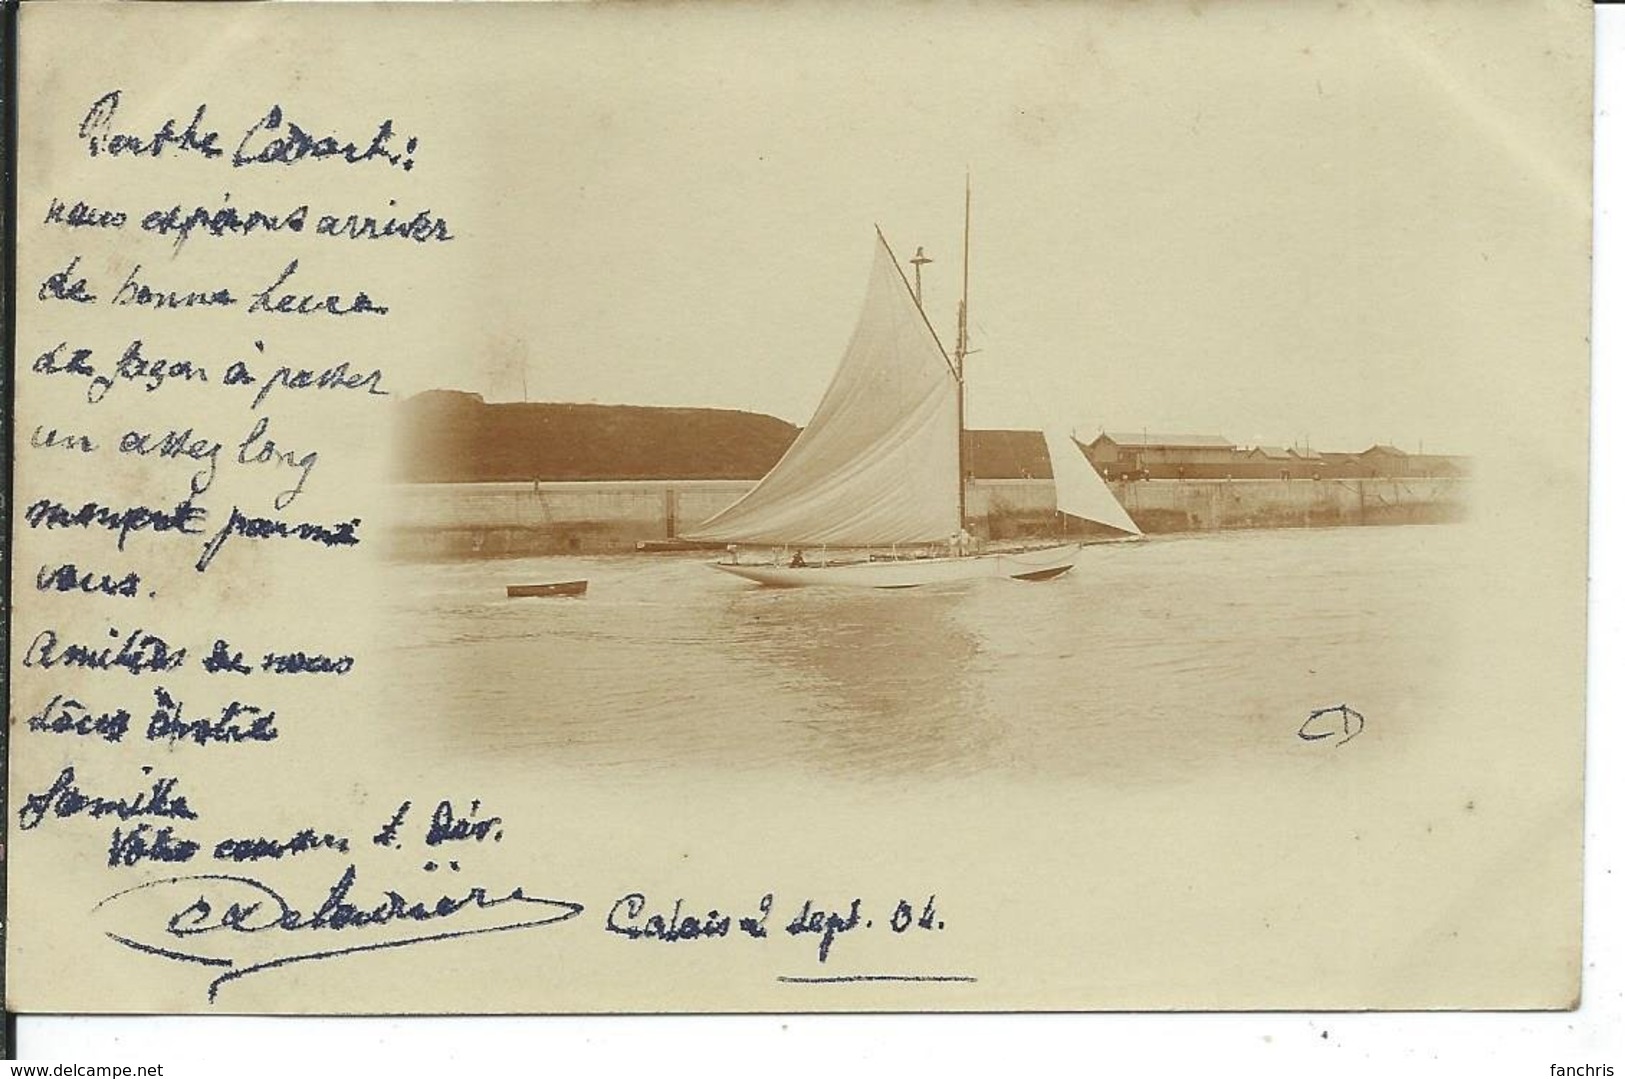 Berthe Cadart:
nous espérons arriver
de bonne heure
de façon à passer
un assez long
moment parmi
vous.
Amitiés de nous
tous à votre
famille
Votre cousin t. Dév.
Delaurière
Calais 2 sept. 04.
CD
www.delcampe.net
fanchris